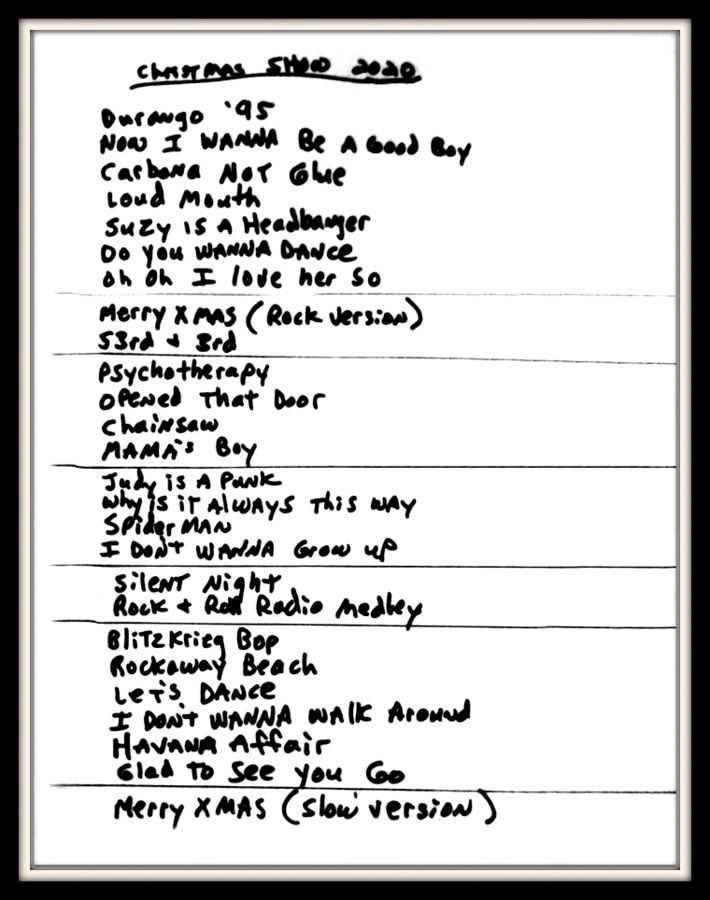 Christmas Show 2020
Durango '95
Now I WANNA Be A Good Boy
Carbona Not Glue
Loud Mouth
Suzy is A Headbanger
Do you WANNA DANCE
oh oh I love her so
Merry XMAS (Rock version)
53rd & 3rd
Psychotherapy
Opened That Door
Chainsaw
MAMA's Boy
Judy is A Punk
Why is it Always This Way
SpiderMAN
I Don't WANNA Grow up
Silent Night
Rock & Roll Radio Medley
Blitzkrieg Bop
Rockaway Beach
Let's DANCE
I Don't WANNA Walk Around
HAVANA Affair
Glad To See you Go
Merry XMAS (Slow version)